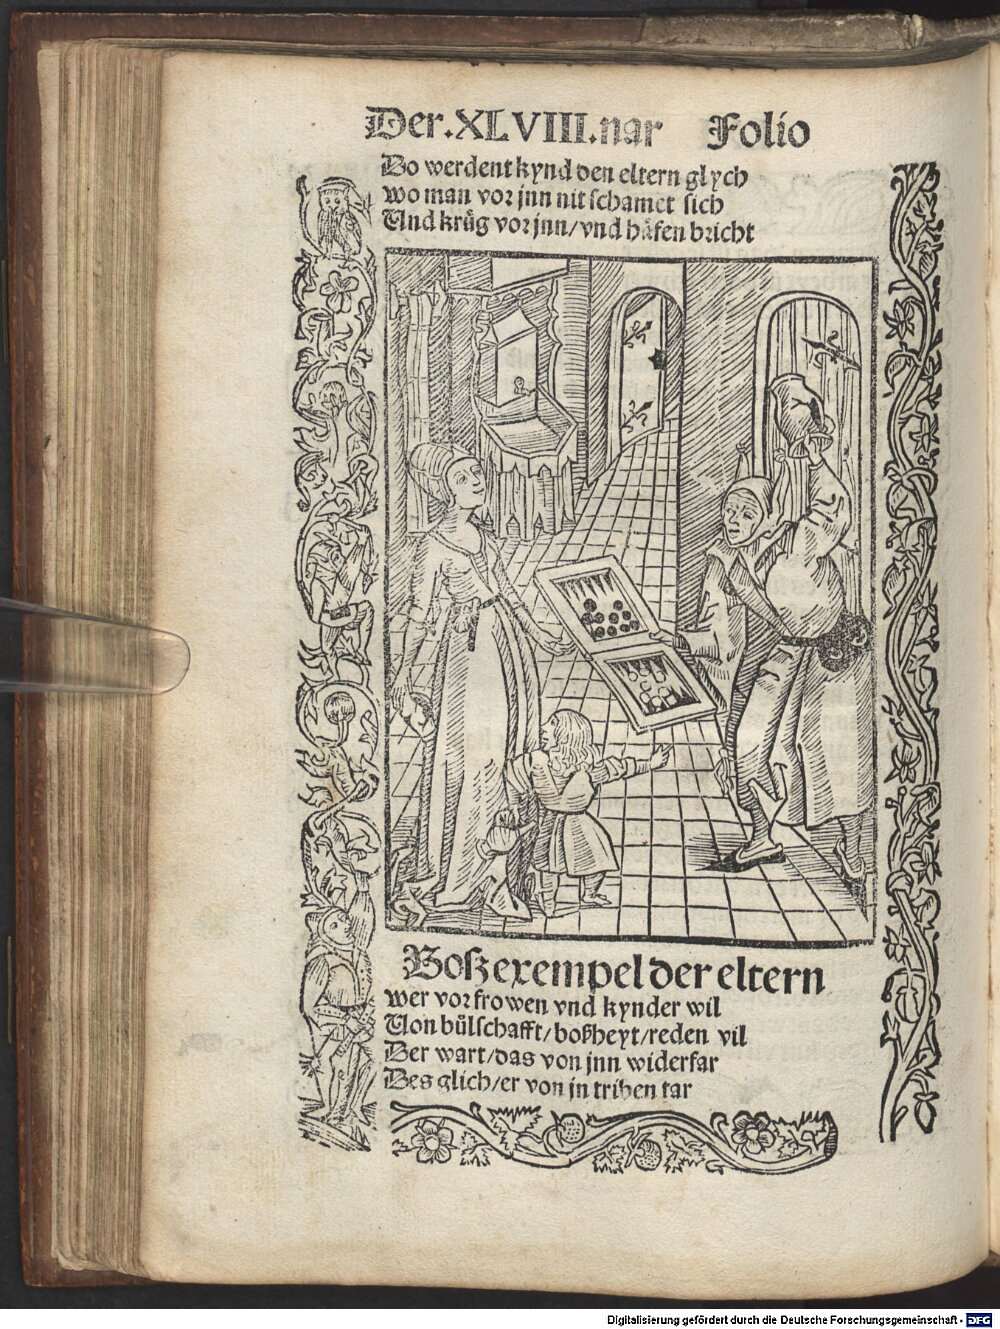 Der.XLVIII.nar Folio
Do werdent kynd den eltern glych
wo man vor jnn nit schamet sich
Und krůg vor jnn/vnd håfen bricht
Boß exempel der eltern
wer vor frowen vnd kynder wil
Von bůlschafft/boßheyt/reden vil
Der wart/das von jnn widerfar
Des glich/er von jn triben tar
Digitalisierung gefördert durch die Deutsche Forschungsgemeinschaft - DFG